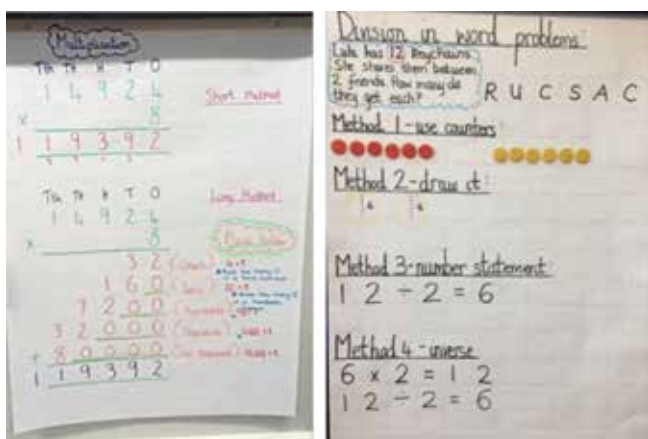 Multiplication
Tth Th H T O
1 4 9 2 4
x 8
1 1 9 3 9 2
Short Method
Tth Th H T O
1 4 9 2 4
Long Method
x 8
3 2
1 6 0
7 2 0 0
3 2 0 0 0
+ 8 0 0 0 0
1 1 9 3 9 2
Division in word problems
Lata has 12 keychains.
She shares them between
2 friends. How many do
they get each?
R U C S A C
Method 1 - use counters
Method 2 - draw it
Method 3 - number statement
1 2 ÷ 2 = 6
Method 4 - inverse
6 x 2 = 1 2
1 2 ÷ 2 = 6